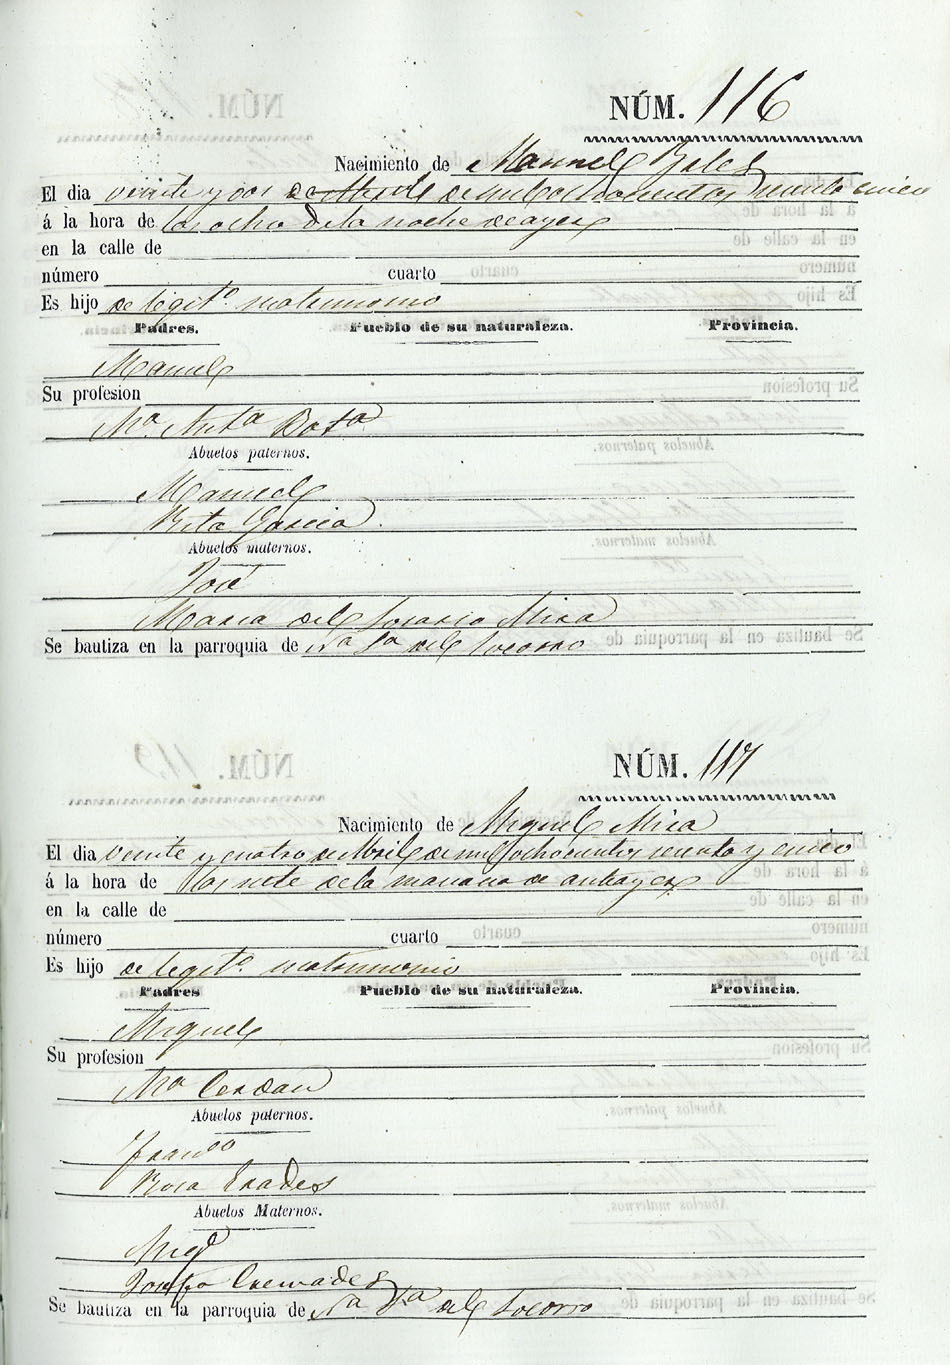 NÚM. 116
Nacimiento de Manuel
El dia veinte y dos de Abril de mil ochocientos sesenta cinco
á la hora de las ocho de la noche de ayer
en la calle de
número cuarto
Es hijo de legit.º matrimonio
Padres. Pueblo de su naturaleza. Provincia.
Manuel
Su profesion
Mª Anta
Abuelos paternos.
Manuel
Rita Garcia
Abuelos maternos.
José
Maria del Rosario Mira
Se bautiza en la parroquia de Nª Sª del Socorro
NÚM. 117
Nacimiento de Miguel Mira
El dia veinte y cuatro de Abril de mil ochocientos sesenta y cinco
á la hora de las siete de la mañana de antiayer
en la calle de
número cuarto
Es hijo de legit.º matrimonio
Padres Pueblo de su naturaleza. Provincia.
Miguel
Su profesion
Mª Cerdan
Abuelos paternos.
Franco
Rosa Erades
Abuelos Maternos.
Migl
Josefa Cremades
Se bautiza en la parroquia de Nª Sª del Socorro